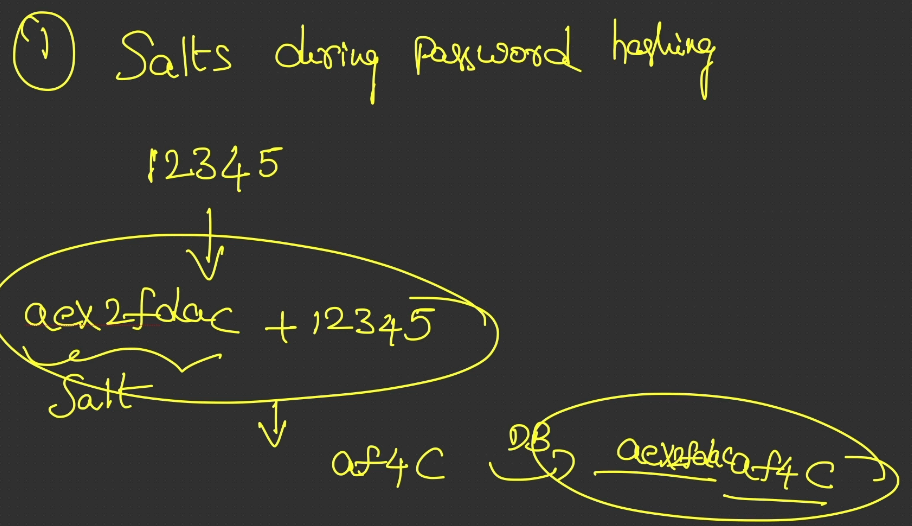 1 Salts during password hashing
12345
aex2fdac + 12345
Salt
af4c DB aex2fdacaf4c